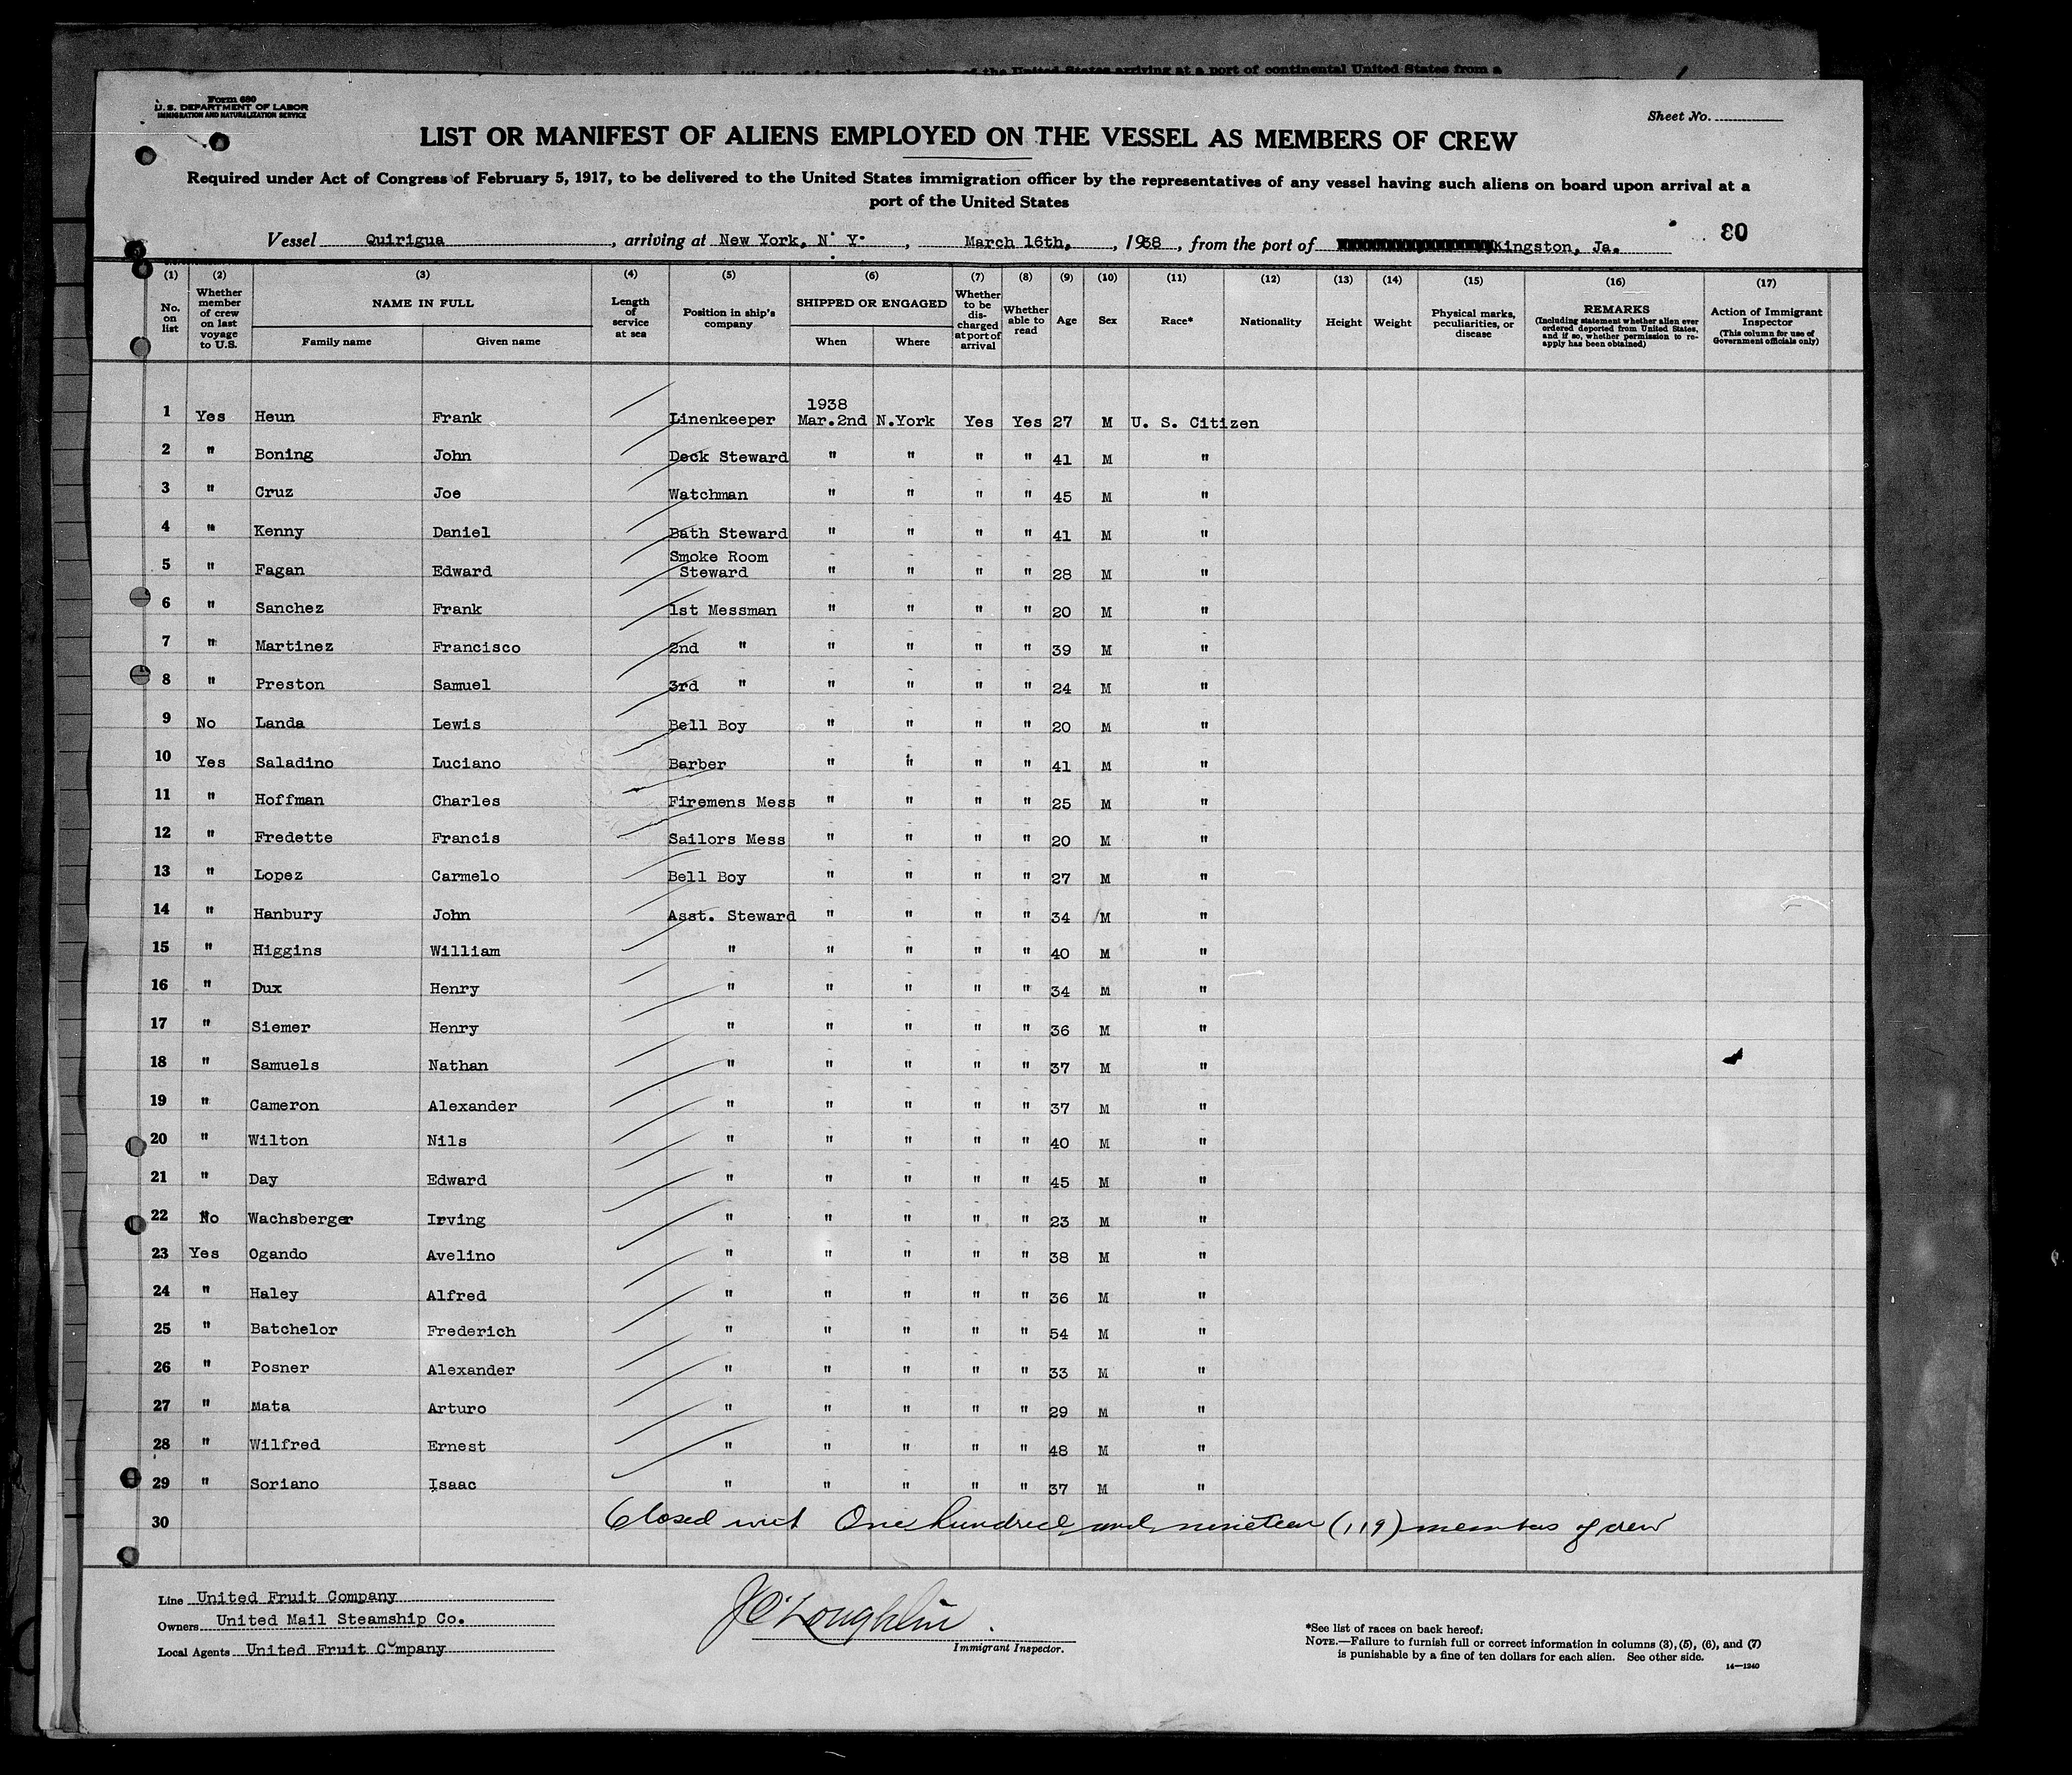 of the United States arriving at a port of continental United States from a
Form 680
U. S. DEPARTMENT OF LABOR
IMMIGRATION AND NATURALIZATION SERVICE
Sheet No.
LIST OR MANIFEST OF ALIENS EMPLOYED ON THE VESSEL AS MEMBERS OF CREW
Required under Act of Congress of February 5, 1917, to be delivered to the United States immigration officer by the representatives of any vessel having such aliens on board upon arrival at a
port of the United States
Vessel Quirigua, arriving at New York, N. Y., March 16th, 1938, from the port of Kingston, Ja. 80
(1) (2) (3) (4) (5) (6) (7) (8) (9) (10) (11) (12) (13) (14) (15) (16) (17)
No. on list
Whether member of crew on last voyage to U.S.
NAME IN FULL
Family name Given name
Length of service at sea
Position in ship's company
SHIPPED OR ENGAGED
When Where
Whether to be discharged at port of arrival
Whether able to read
Age
Sex
Race*
Nationality
Height
Weight
Physical marks, peculiarities, or disease
REMARKS
(Including statement whether alien ever ordered deported from United States, and if so, whether permission to reapply has been obtained)
Action of Immigrant Inspector
(This column for use of Government officials only)
1938
1 Yes Heun Frank Linenkeeper Mar.2nd N.York Yes Yes 27 M U. S. Citizen
2 " Boning John Deck Steward " " " " 41 M "
3 " Cruz Joe Watchman " " " " 45 M "
4 " Kenny Daniel Bath Steward " " " " 41 M "
Smoke Room
5 " Fagan Edward Steward " " " " 28 M "
6 " Sanchez Frank 1st Messman " " " " 20 M "
7 " Martinez Francisco 2nd " " " " " 39 M "
8 " Preston Samuel 3rd " " " " " 24 M "
9 No Landa Lewis Bell Boy " " " " 20 M "
10 Yes Saladino Luciano Barber " " " " 41 M "
11 " Hoffman Charles Firemens Mess " " " " 25 M "
12 " Fredette Francis Sailors Mess " " " " 20 M "
13 " Lopez Carmelo Bell Boy " " " " 27 M "
14 " Hanbury John Asst. Steward " " " " 34 M "
15 " Higgins William " " " " " 40 M "
16 " Dux Henry " " " " " 34 M "
17 " Siemer Henry " " " " " 36 M "
18 " Samuels Nathan " " " " " 37 M "
19 " Cameron Alexander " " " " " 37 M "
20 " Wilton Nils " " " " " 40 M "
21 " Day Edward " " " " " 45 M "
22 No Wachsberger Irving " " " " " 23 M "
23 Yes Ogando Avelino " " " " " 38 M "
24 " Haley Alfred " " " " " 36 M "
25 " Batchelor Frederich " " " " " 54 M "
26 " Posner Alexander " " " " " 33 M "
27 " Mata Arturo " " " " " 29 M "
28 " Wilfred Ernest " " " " " 48 M "
29 " Soriano Isaac " " " " " 37 M "
30 Closed wit One hundred and nineteen (119) members of crew
Line United Fruit Company
Owners United Mail Steamship Co.
Local Agents United Fruit Company
J O'Loughlin
Immigrant Inspector.
*See list of races on back hereof.
NOTE.—Failure to furnish full or correct information in columns (3), (5), (6), and (7)
is punishable by a fine of ten dollars for each alien. See other side.
14—1240